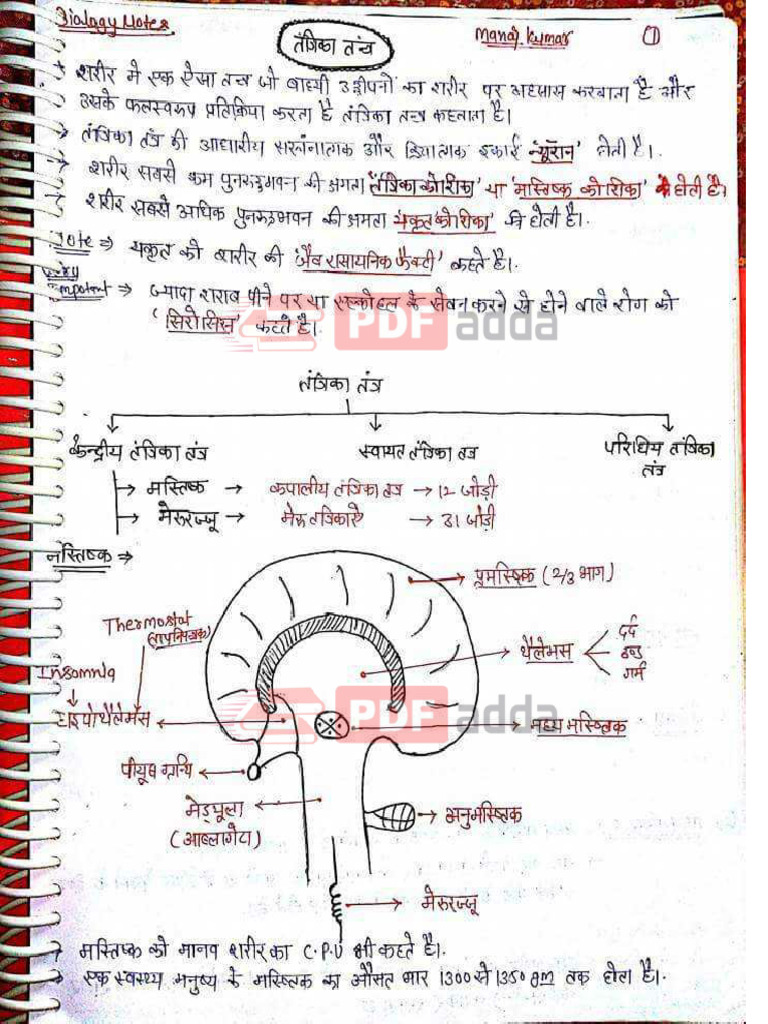 Biology Notes
Manoj kumar
1
तंत्रिका तंत्र
→ शरीर में एक ऐसा तन्त्र जो बाध्यी उद्दीपनों का शरीर पर अहसास करवाता है और
उसके फलस्वरूप प्रतिक्रिया करता है तंत्रिका तन्त्र कहलाता है।
→ तंत्रिका तंत्र की आधारीय सरंचनात्मक और क्रियात्मक इकाई 'न्यूरॉन' होती है।
→ शरीर सबसे कम पुनरूद्भवन की क्षमता 'तंत्रिका कोशिका' या 'मस्तिष्क कोशिका' में होती है।
→ शरीर सबसे अधिक पुनरूद्भवन की क्षमता यकृत कोशिका' की होती है।
Note ⇒ यकृत को शरीर की 'जैव रासायनिक फैक्ट्री' कहते है।
Very
Impotent ⇒ ज्यादा शराब पीने पर या एल्कोहल के सेवन करने से होने वाले रोग को
'सिरोसिस' कहते है।
PDF adda
तंत्रिका तंत्र
केन्द्रीय तंत्रिका तंत्र
स्वायत तंत्रिका तंत्र
परिधिय तंत्रिका
तंत्र
→ मस्तिष्क → कपालीय तंत्रिका तंत्र → 12 जोड़ी
→ मेरुरज्जू → मेरु तंत्रिकाऐ → 31 जोड़ी
मस्तिष्क ⇒
→ प्रमस्तिष्क (2/3 भाग)
Thermostat
(तापनियंत्रक)
→ थैलेमस
दर्द
ठण्ड
गर्म
Insomnia
हाइपोथैलेमस
PDF adda
→ मध्य मस्तिष्क
पीयूष ग्रन्थि
मेड्यूला
(आब्लांगेटा)
→ अनुमस्तिष्क
→ मेरुरज्जू
→ मस्तिष्क को मानव शरीर का C.P.U भी कहते है।
→ एक स्वस्थ्य मनुष्य के मस्तिष्क का औसत भार 1300 से 1350 gm तक होता है।